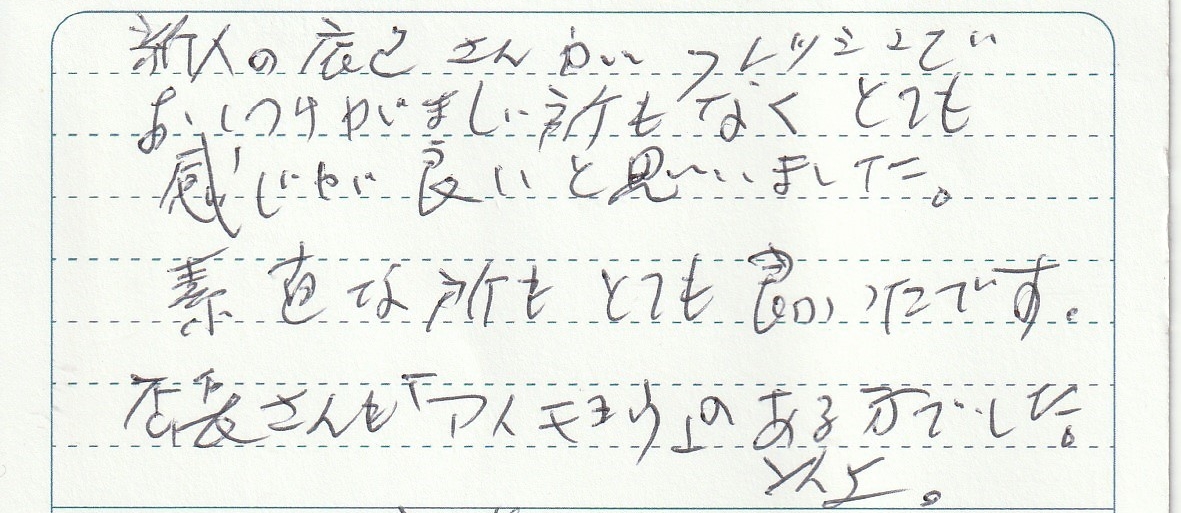 新人の店员さんがフレッシュで
おしつけがましい所もなくとても
感じが良いと思いました。
素直な所もとても良かったです。
店長さんも「アイキョウ」のある方でした。